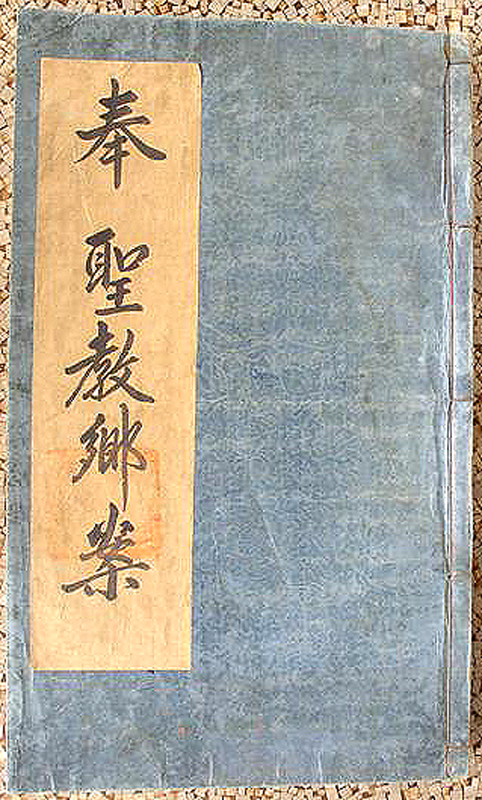 奉 聖教鄉案